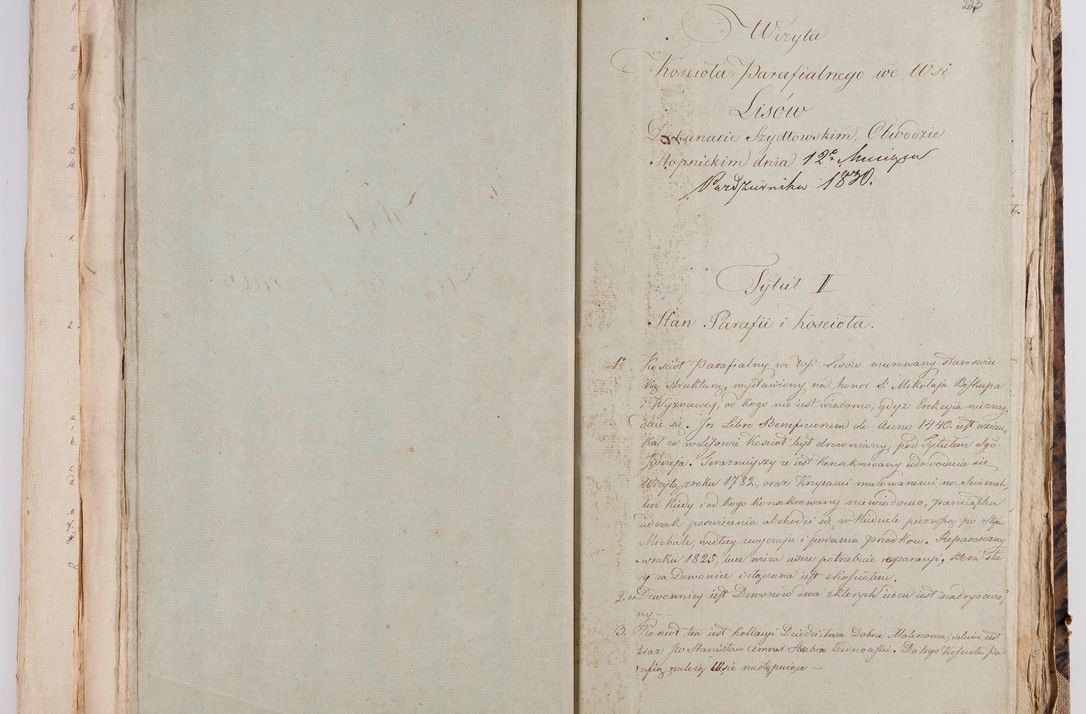 223
Wizyta
Kościoła Parafialnego we Wsi
Lisów
Dekanacie Szydłowskim, Obwodzie
Stopnickim dnia 12º Miesiąca
Pazdziernika 1830.
Tytuł II
Stan Parafii i kościoła.
1º Kościoł Parafialny we Wsi Lisów murowany staroświe
ką strukturą, wystawiony na honor S. Mikołaja Biskupa
i Wyznawcy, od kogo nie iest wiadomo, gdyż Erekcyia nieznay
duie się. In Libro Beneficiorum de Anno 1440. iest
że w Lisowie Kościoł był drewniany, pod Tytułem Sgo
Teraznieyszy że iest konsekrowany udowodnia się
Wizytą z roku 1782, oraz Krzyżami malowanemi na Scianach,
lecz kiedy i od kogo konsekrowany niewiadomo, pamiątka
iednak poświęcenia obchodzi się w Niedziele pierwszą po Stym
Michale, według zwyczaju i podania przodków. Reparowany
w roku 1825, lecz wieża iescze potrzebuie reparacyi, która słu
ży za Dzwonnice i złączona iest z Kościołem.
2. w Dzwonnicy iest Dzwonów dwa z których ieden iest nadrysowa
ny.—
3. Kościoł ten iest kollacyi Dziedzictwa Dobra Maleszowa, należnie iest
teraz Jw Stanisław Hrabia Dotego Kościoła Pa
rafią należą Wsie następuiące —